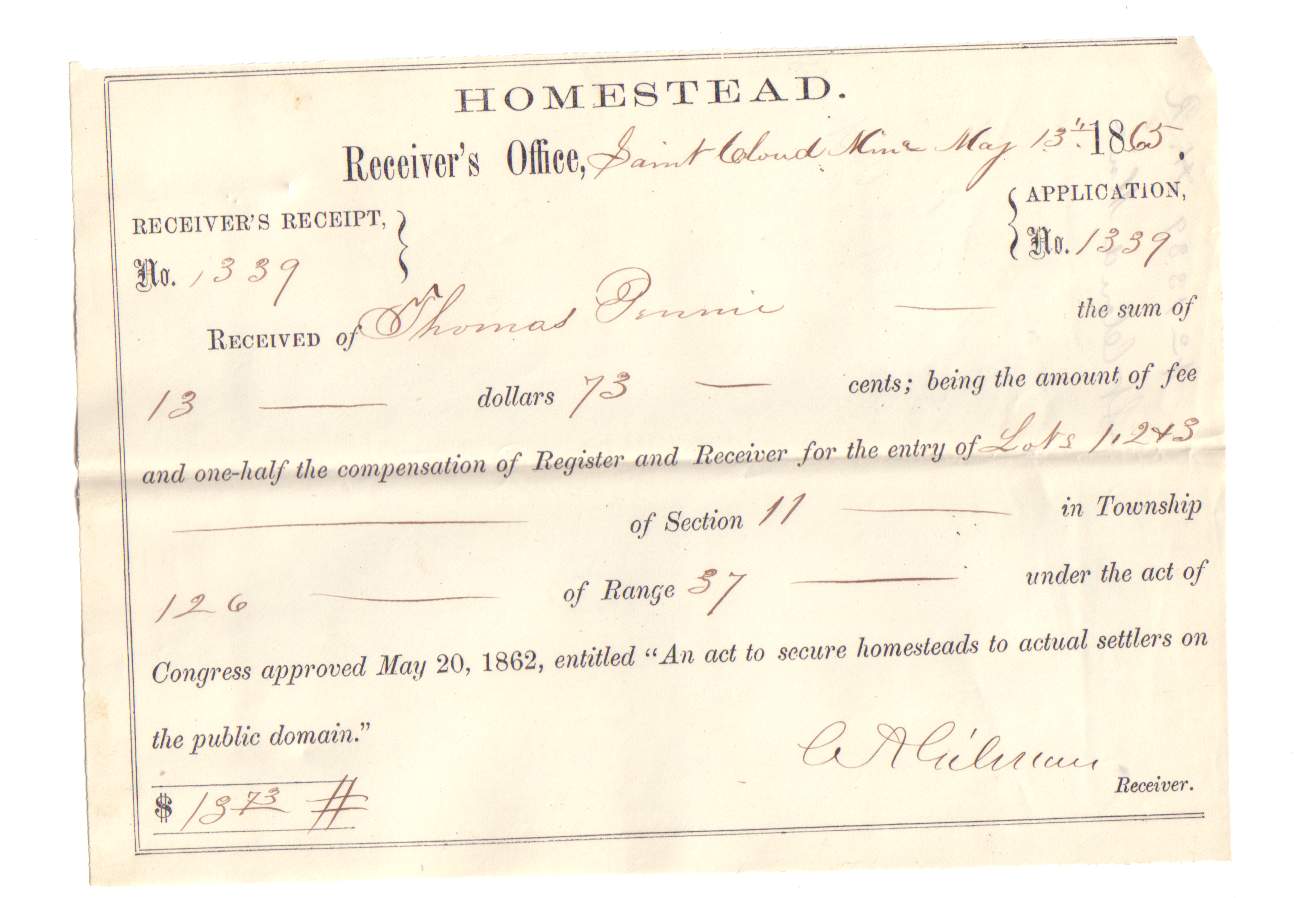 HOMESTEAD.
Receiver's Office, Saint Cloud Minn May 13th 1865.
RECEIVER'S RECEIPT, } { APPLICATION,
No. 1339 No. 1339
RECEIVED of Thomas Pennie — the sum of
13 — dollars 73 — cents; being the amount of fee
and one-half the compensation of Register and Receiver for the entry of Lots 1, 2 & 3
— of Section 11 — in Township
126 — of Range 37 — under the act of
Congress approved May 20, 1862, entitled “An act to secure homesteads to actual settlers on
the public domain.”
C A Gilman
Receiver.
$ 13 73